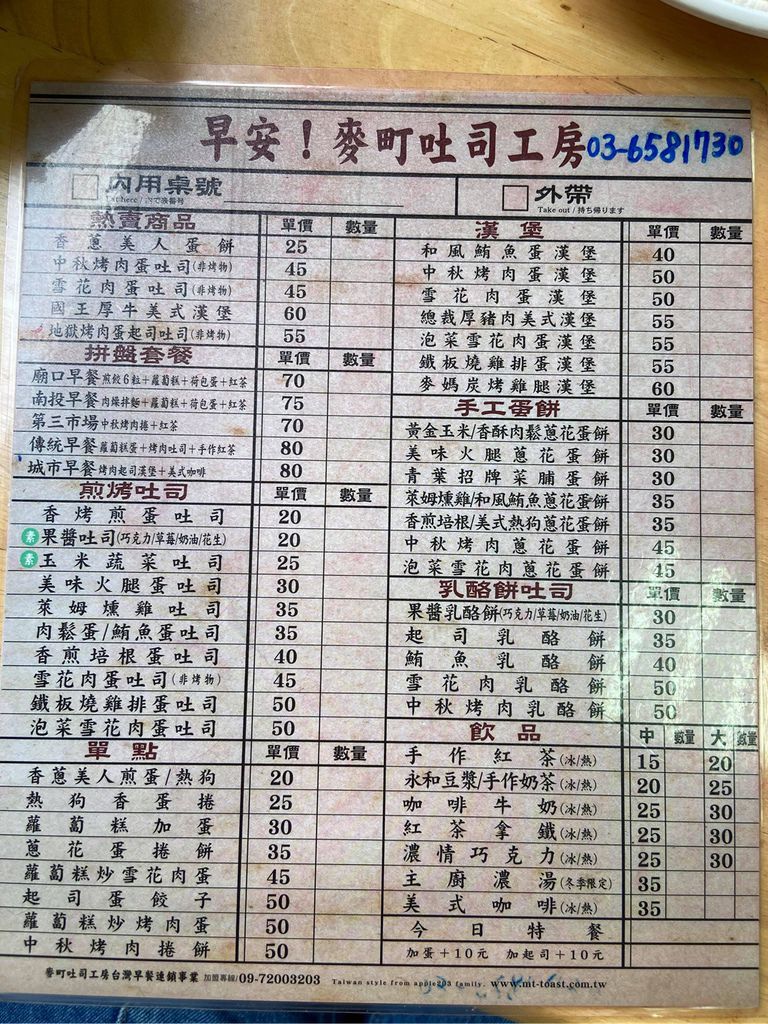 早安！麥町吐司工房 03-6581730
內用桌號
外帶
Take out / 持ち帰ります
熱賣商品 單價 數量
香蔥美人蛋餅 25
中秋烤肉蛋吐司(非烤物) 45
雪花肉蛋吐司(非烤物) 45
國王厚牛美式漢堡 60
地獄烤肉蛋起司吐司(非烤物) 55
拼盤套餐 單價 數量
廟口早餐 煎餃6粒+蘿蔔糕+荷包蛋+紅茶 70
南投早餐 肉燥拌麵+蘿蔔糕+荷包蛋+紅茶 75
第三市場 中秋烤肉捲+紅茶 70
傳統早餐 蘿蔔糕蛋+烤肉吐司+手作紅茶 80
城市早餐 烤肉起司漢堡+美式咖啡 80
煎烤吐司 單價 數量
香烤煎蛋吐司 20
素 果醬吐司(巧克力/草莓/奶油/花生) 20
素 玉米蔬菜吐司 25
美味火腿蛋吐司 30
萊姆燻雞吐司 35
肉鬆蛋/鮪魚蛋吐司 35
香煎培根蛋吐司 40
雪花肉蛋吐司(非烤物) 45
鐵板燒雞排蛋吐司 50
泡菜雪花肉蛋吐司 50
單點 單價 數量
香蔥美人煎蛋/熱狗 20
熱狗香蛋捲 25
蘿蔔糕加蛋 30
蔥花蛋捲餅 35
蘿蔔糕炒雪花肉蛋 45
起司蛋餃子 50
蘿蔔糕炒烤肉蛋 50
中秋烤肉捲餅 50
漢堡 單價 數量
和風鮪魚蛋漢堡 40
中秋烤肉蛋漢堡 50
雪花肉蛋漢堡 50
總裁厚豬肉美式漢堡 55
泡菜雪花肉蛋漢堡 55
鐵板燒雞排蛋漢堡 55
麥媽炭烤雞腿漢堡 60
手工蛋餅 單價 數量
黃金玉米/香酥肉鬆蔥花蛋餅 30
美味火腿蔥花蛋餅 30
青葉招牌菜脯蛋餅 30
萊姆燻雞/和風鮪魚蔥花蛋餅 35
香煎培根/美式熱狗蔥花蛋餅 35
中秋烤肉蔥花蛋餅 45
泡菜雪花肉蔥花蛋餅 45
乳酪餅吐司 單價 數量
果醬乳酪餅(巧克力/草莓/奶油/花生) 30
起司乳酪餅 35
鮪魚乳酪餅 40
雪花肉乳酪餅 50
中秋烤肉乳酪餅 50
飲品 中 數量 大 數量
手作紅茶(冰/熱) 15 20
永和豆漿/手作奶茶(冰/熱) 20 25
咖啡牛奶(冰/熱) 25 30
紅茶拿鐵(冰/熱) 25 30
濃情巧克力(冰/熱) 25 30
主廚濃湯(冬季限定) 35
美式咖啡(冰/熱) 35
今日特餐
加蛋+10元 加起司+10元
麥町吐司工房台灣早餐連鎖事業 加盟專線/09-72003203 Taiwan style from apple203 family. www.mt-toast.com.tw